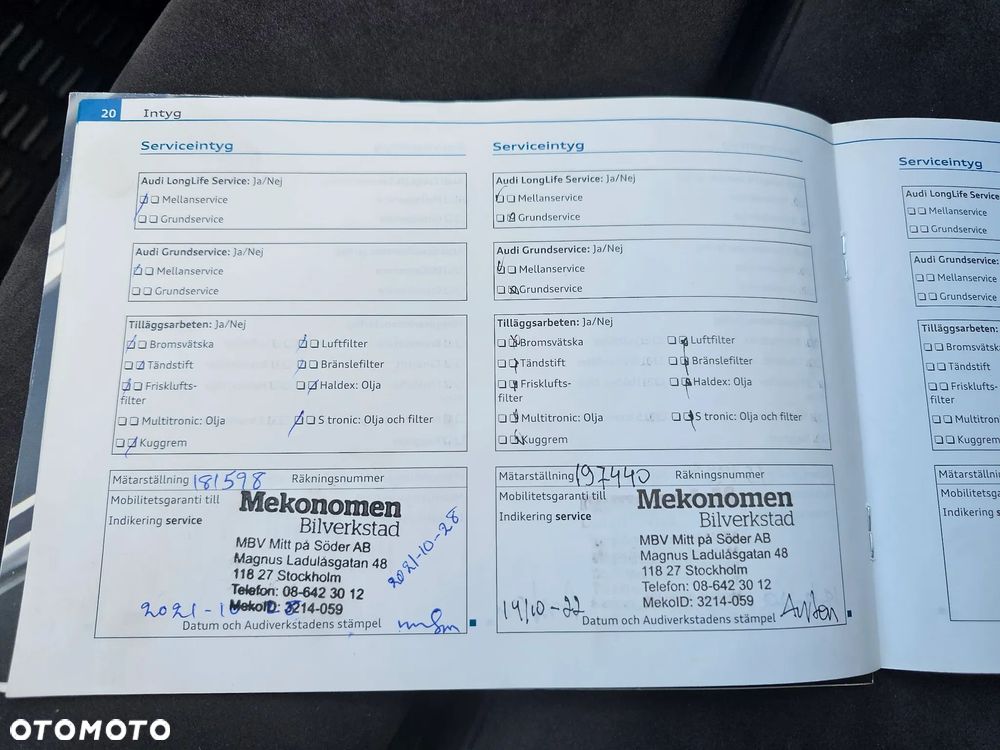 20 Intyg
Serviceintyg
Audi LongLife Service: Ja/Nej
Mellanservice
Grundservice
Audi Grundservice: Ja/Nej
Mellanservice
Grundservice
Tilläggsarbeten: Ja/Nej
Bromsvätska Luftfilter
Tändstift Bränslefilter
Friskluftsfilter Haldex: Olja
Multitronic: Olja S tronic: Olja och filter
Kuggrem
Mätarställning 181598 Räkningsnummer
Mobilitetsgaranti till
Indikering service
Mekonomen
Bilverkstad
MBV Mitt på Söder AB
Magnus Ladulåsgatan 48
118 27 Stockholm
Telefon: 08-642 30 12
MekoID: 3214-059
2021-10-28
2021-10-28
Datum och Audiverkstadens stämpel
Serviceintyg
Audi LongLife Service: Ja/Nej
Mellanservice
Grundservice
Audi Grundservice: Ja/Nej
Mellanservice
Grundservice
Tilläggsarbeten: Ja/Nej
Bromsvätska Luftfilter
Tändstift Bränslefilter
Friskluftsfilter Haldex: Olja
Multitronic: Olja S tronic: Olja och filter
Kuggrem
Mätarställning 197440 Räkningsnummer
Mobilitetsgaranti till
Indikering service
Mekonomen
Bilverkstad
MBV Mitt på Söder AB
Magnus Ladulåsgatan 48
118 27 Stockholm
Telefon: 08-642 30 12
MekoID: 3214-059
14/10-22
Datum och Audiverkstadens stämpel
Serviceintyg
Audi LongLife Service:
Mellanservice
Grundservice
Audi Grundservice:
Mellanservice
Grundservice
Tilläggsarbeten:
Bromsvätsk
Tändstift
Friskluftsfilter
Multitron
Kuggrem
Mätarställnin
Mobilitetsg
Indikering s
OTOMOTO